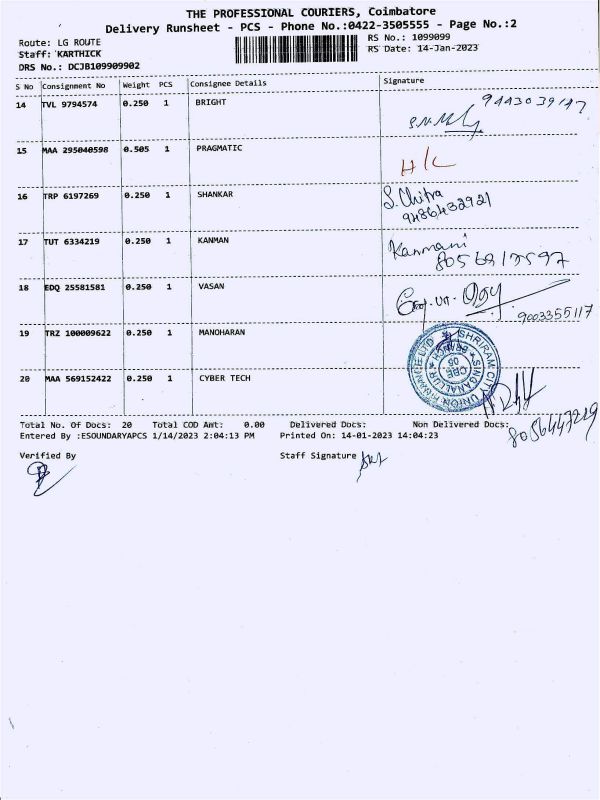 THE PROFESSIONAL COURIERS, Coimbatore
Delivery Runsheet - PCS - Phone No.:0422-3505555 - Page No.:2
Route: LG ROUTE RS No.: 1099099
Staff: KARTHICK RS Date: 14-Jan-2023
DRS No.: DCJB109909902
S No Consignment No Weight PCS Consignee Details Signature
14 TVL 9794574 0.250 1 BRIGHT 9443039147
15 MAA 295040598 0.505 1 PRAGMATIC H/C
16 TRP 6197269 0.250 1 SHANKAR S. Chitra
9486432921
17 TUT 6334219 0.250 1 KANMAN Kanmani
18 EDQ 25581581 0.250 1 VASAN
9003355117
19 TRZ 100009622 0.250 1 MANOHARAN
SHRIRAM CITY UNION FINANCE LTD
SINGANALLUR BRANCH
CBE
05
20 MAA 569152422 0.250 1 CYBER TECH
8056447219
Total No. Of Docs: 20 Total COD Amt: 0.00 Delivered Docs: Non Delivered Docs:
Entered By :ESOUNDARYAPCS 1/14/2023 2:04:13 PM Printed On: 14-01-2023 14:04:23
Verified By Staff Signature